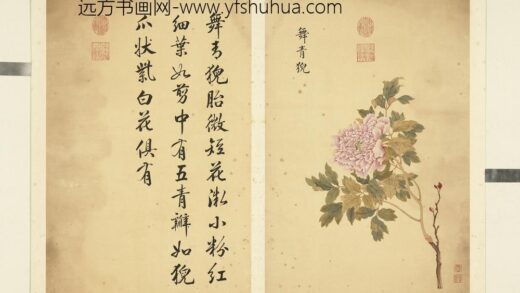 远方书画网-www.yfshuhua.com
舞青猊
舞青猊胎微短花漵小粉紅
細葉如剪中有五青瓣如猊
爪狀紫白花俱有